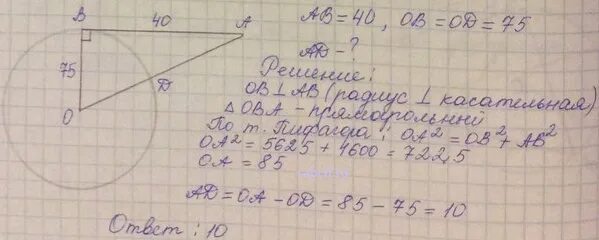 B 40 A
75
D
O
AB = 40, OB = OD = 75
AD - ?
Решение:
OB ⊥ AB (радиус ⊥ касательная)
△ OBA - прямоугольний
По т. Пифагора: OA² = OB² + AB²
OA² = 5625 + 4600 = 7225
OA = 85
AD = OA - OD = 85 - 75 = 10
Ответ: 10